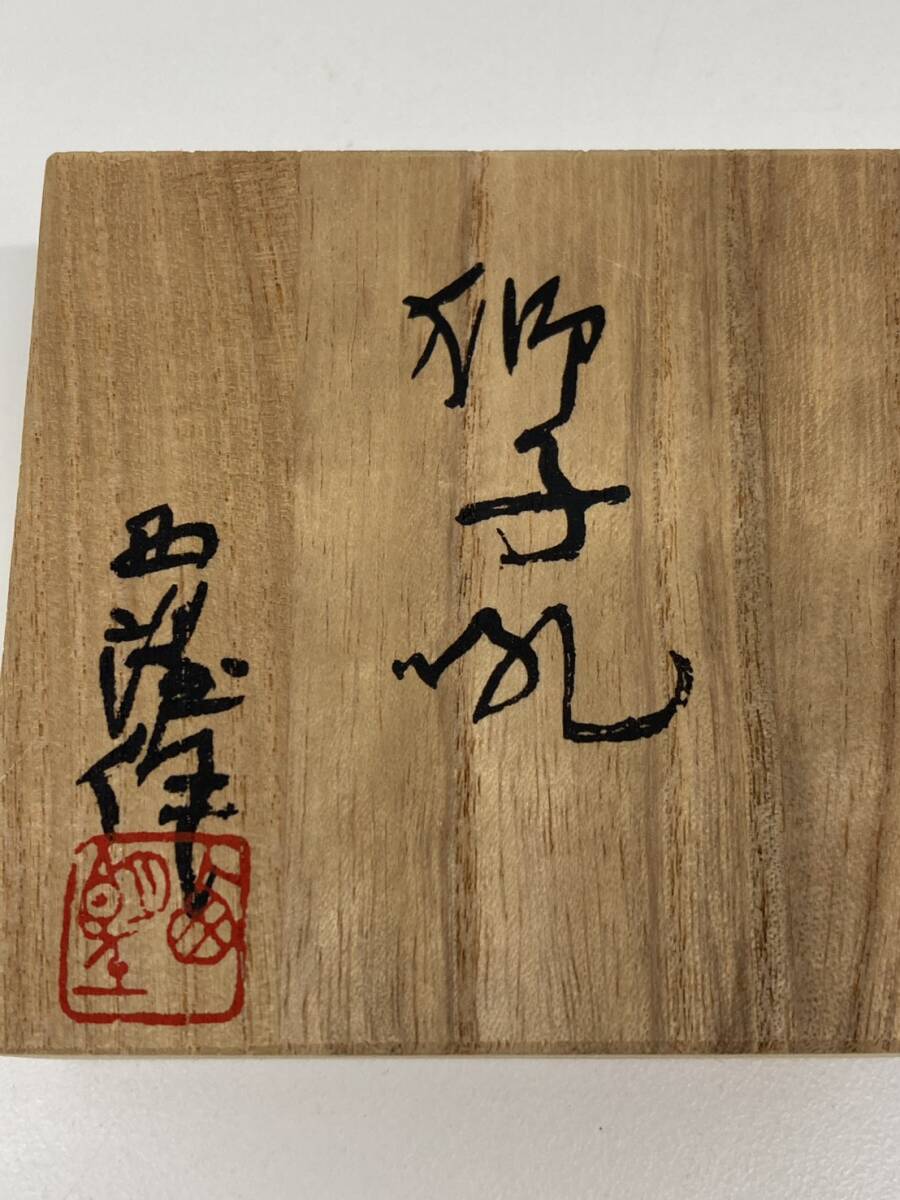 獅子吼
西望作